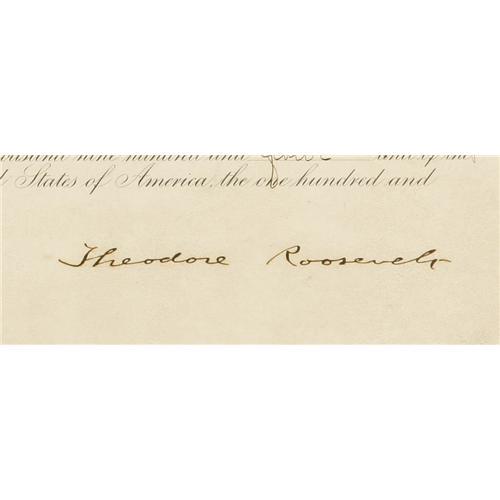 thousand nine hundred and four and of the
States of America, the one hundred and
Theodore Roosevelt